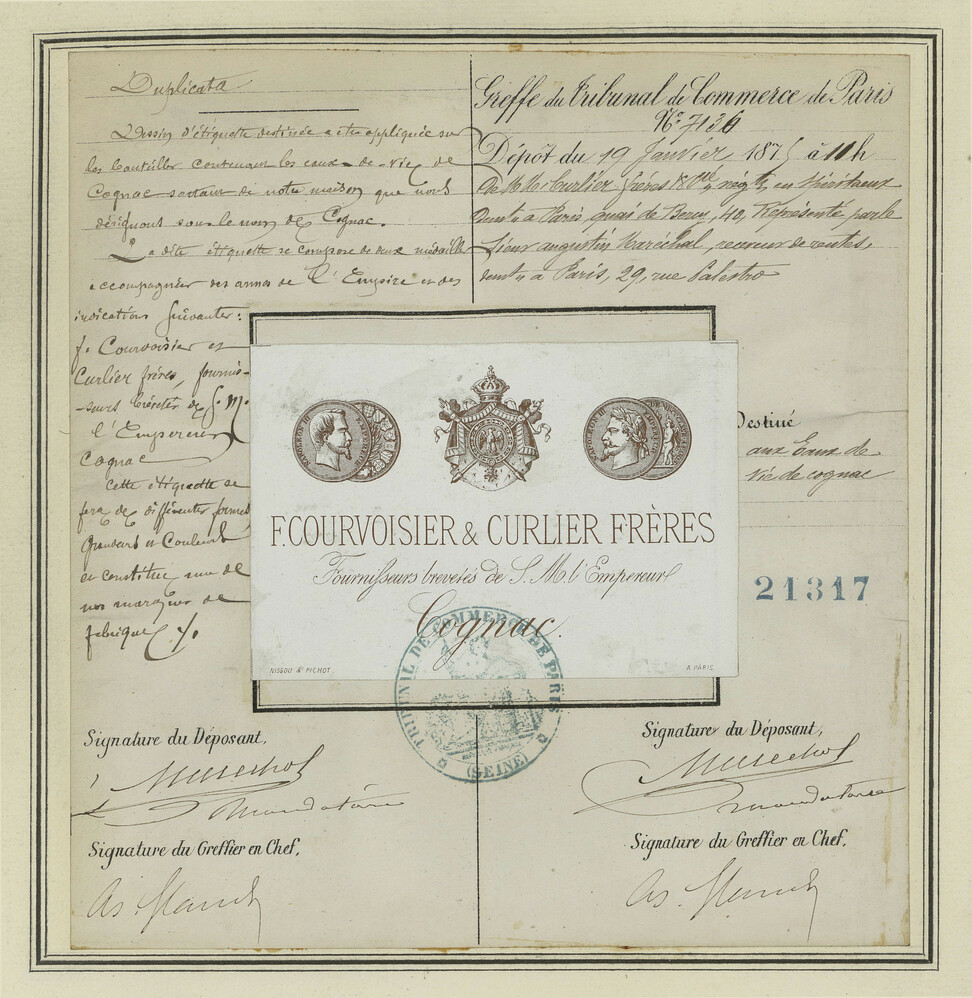 Duplicata
Dessin d'étiquette destinée a etre appliquée sur
les bouteilles contenant les eaux-de-vie de
Cognac sortant de notre maison que nous
désignons sous le nom de Cognac.
La dite étiquette se compose de deux médailles
accompagnées des armes de l'Empire et des
indications suivantes:
f. Courvoisier et
Curlier frères, fournis-
seurs brévetés de S. M.
l'Empereur
Cognac
Cette étiquette se
fera de différentes formes
Grandeurs et Couleurs
et constitue une de
nos marques de
fabrique
Greffe du Tribunal de Commerce de Paris
N° 7136
Dépôt du 19 Janvier 1875 à 11h
De MM Curlier frères & Cie, négts en Spiritueux
demt à Paris, quai de Bercy, 40, Représenté par le
Sieur augustin Maréchal, receveur de rentes,
demt à Paris, 29, rue Palestro
Destiné
aux Eaux de
vie de cognac
21317
NAPOLEON III
EMPEREUR
NAPOLEON III
EMPEREUR
F. COURVOISIER & CURLIER FRÈRES
Fournisseurs brevetés de S. M. l'Empereur
Cognac.
NISSOU & PICHOT.
A PARIS.
TRIBUNAL DE COMMERCE DE PARIS
(SEINE)
Signature du Déposant,
Marechal
Mandataire
Signature du Greffier en Chef,
Signature du Déposant,
Marechal
mandataire
Signature du Greffier en Chef,